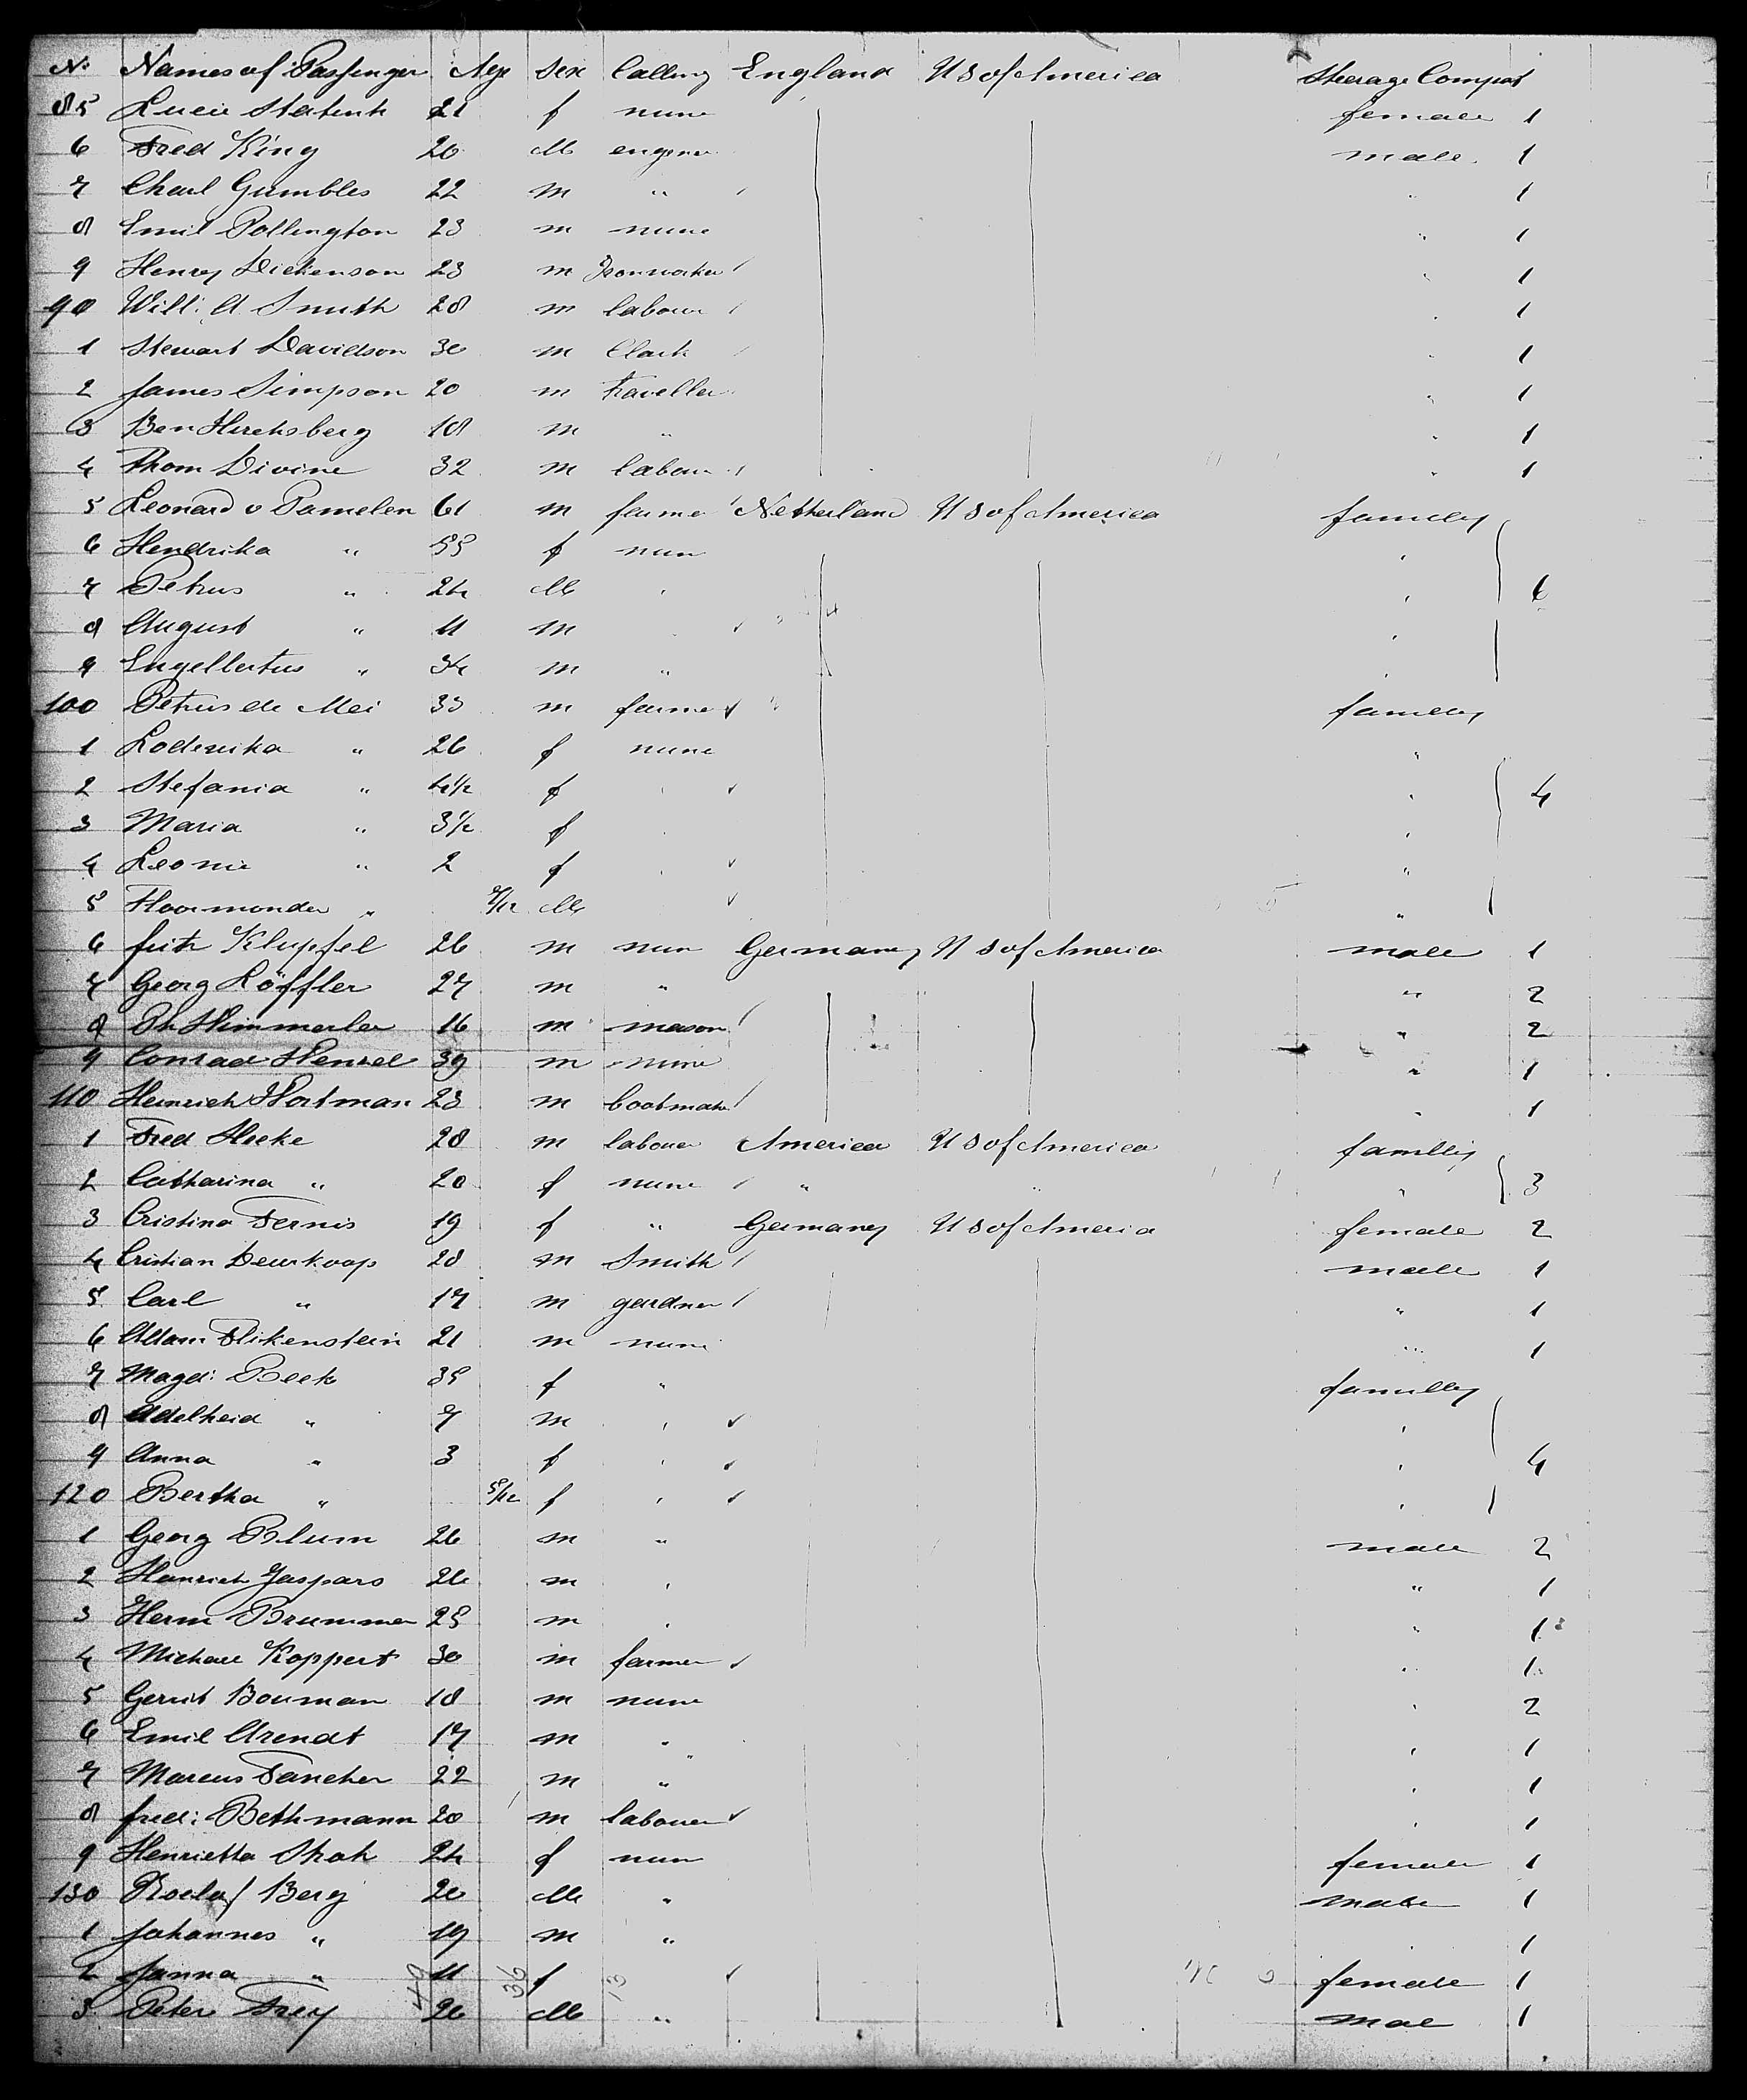 No Names of Passenger Age Sex Calling England U S of America Steerage Compart
85 Lucie Statenk 21 f nune female 1
6 Fred King 20 M engener male 1
7 Charl Gumbles 22 m " " 1
8 Emil Pollington 23 m nune " 1
9 Henry Dickenson 23 m Ironworker " 1
90 Will: A Smith 28 m labour " 1
1 Stewart Davidson 30 m Clark " 1
2 James Simpson 20 m traveller " 1
3 Ben Hirchsberg 18 m " " 1
4 Thom Divine 32 m labour " 1
5 Leonard v Pamelen 61 m farme Netherland U S of America family
6 Hendrika " 55 f nun "
7 Petrus " 24 M " " 6
8 August " 11 m "
9 Engelbertus " 34 m " "
100 Petrus de Mei 33 m farmer family
1 Lodevika " 26 f nune "
2 Stefania " 4½ f " " 4
3 Maria " 3½ f "
4 Leonie " 2 f "
5 " M "
6 fritz Klupfel 26 m nun Germany U S of America male 1
7 Georg Löffler 27 m " " 2
8 Ph Himmerler 16 m mason " 2
9 Conrad Henzel 39 m nune " 1
110 Heinrich Hortman 23 m bootmaker " 1
1 Fred Hecke 28 m labouer America U S of America familly
2 Catharina " 20 f nune " " " 3
3 Cristina Fernis 19 f " Germany U S of America female 2
4 Cristian Deurkoop 28 m Smith male 1
5 Carl " 17 m gardner " 1
6 Adam Flikenstein 21 m nune " 1
7 Magd: Beck 35 f " familly
8 Adelheid " 7 m " "
9 Anna " 3 f " " 4
120 Bertha " 5/12 f " "
1 Georg Blum 26 m " male 2
2 Heinrich Jaspars 26 m " " 1
3 Herm Brummer 25 m " " 1
4 Michael Koppert 30 m farmer " 1
5 Gerrit Bouman 18 m nune " 2
6 Emil Arendt 17 m " " 1
7 Marcus Fancher 22 m " " 1
8 fred: Bethmann 20 m labouer " 1
9 Henrietta Shok 24 f nun female 1
130 Roelof Berg 20 M " male 1
1 Johannes " 19 m " " 1
2 Janna " 11 f female 1
3 Peter Frey 26 M " mal 1
49 36 13